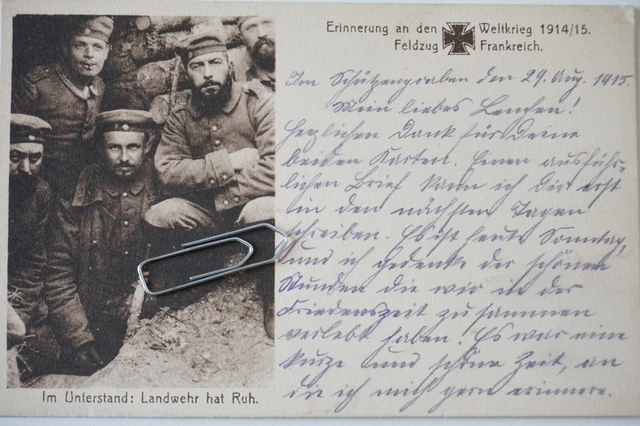 Erinnerung an den Weltkrieg 1914/15.
Feldzug Frankreich.
Im Schützengraben den 29. Aug. 1915.
Mein liebes Lenchen!
Herzlichen Dank für Deine
beiden Karten. Einen ausführ-
lichen Brief kann ich Dir erst
in den nächsten Tagen
schreiben. Es ist heute Sonntag,
und ich gedenke der schönen
Stunden die wir in der
Friedenszeit zusammen
verlebt haben! Es war eine
kurze und schöne Zeit, an
die ich mich gern erinnere.
Im Unterstand: Landwehr hat Ruh.